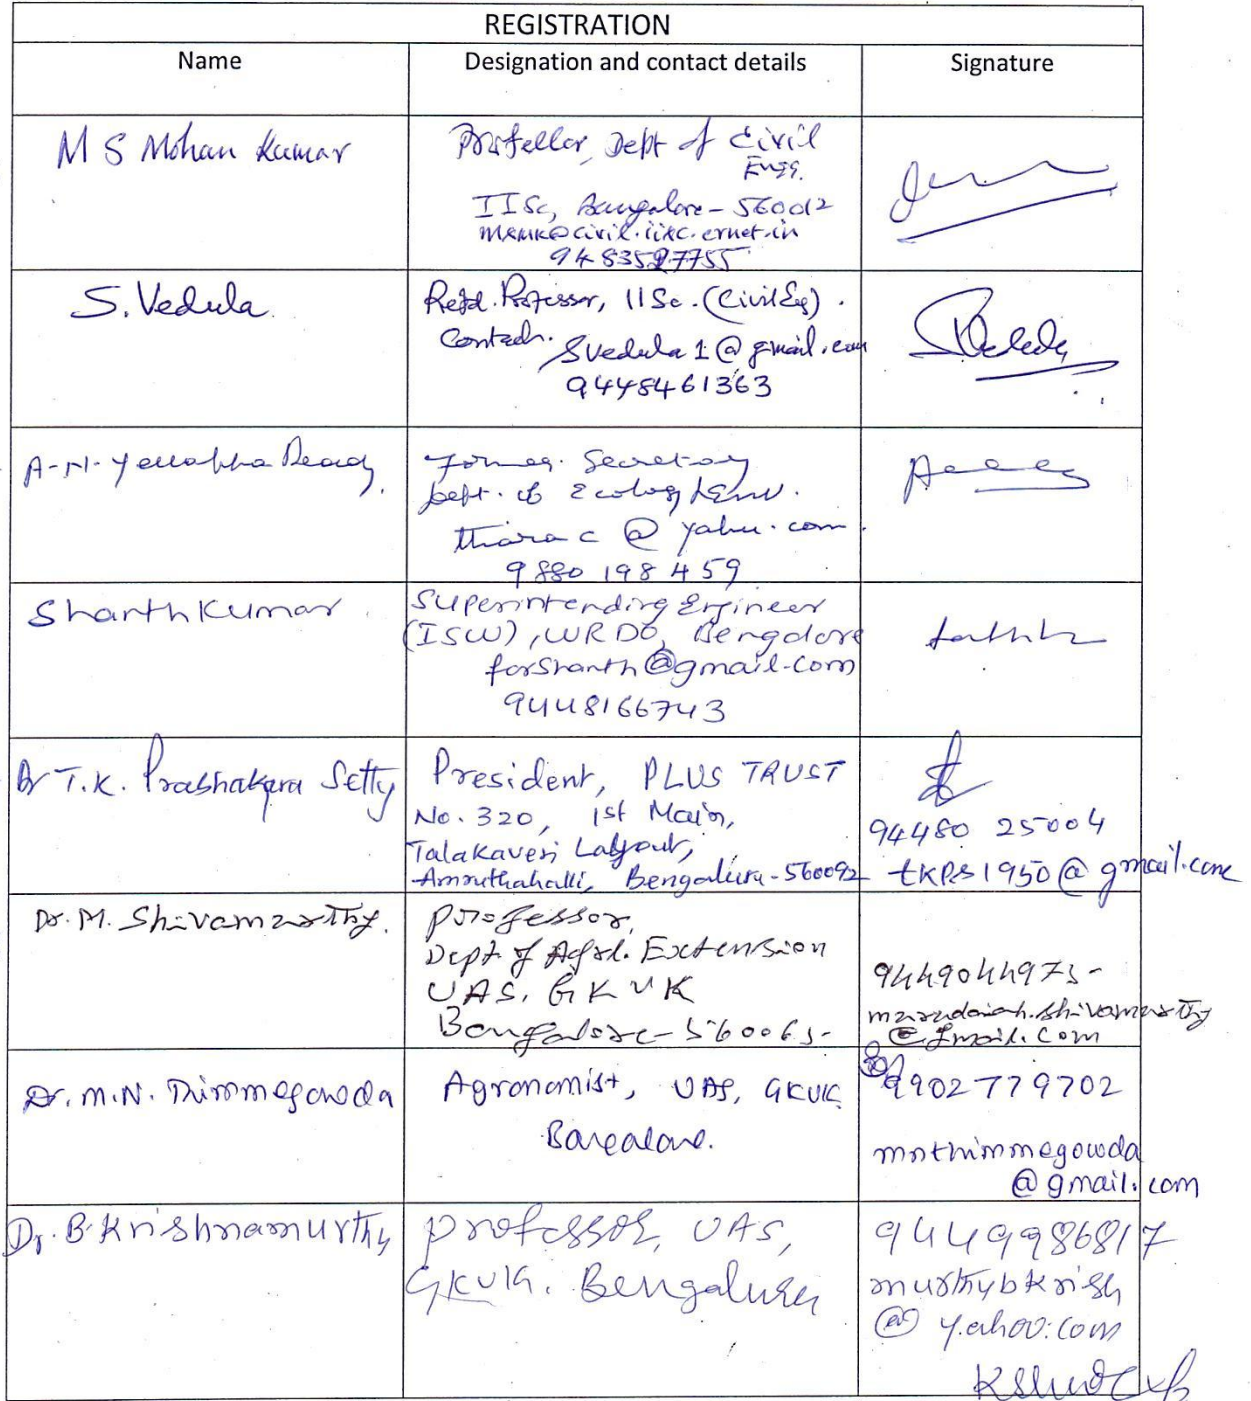 REGISTRATION
Name
Designation and contact details
Signature
M S Mohan Kumar
Professor, Dept of Civil
Engg.
IISc, Bangalore - 560012
msmk@civil.iisc.ernet.in
9483527755
S. Vedula
Retd. Professor, IISc. (Civil Eg).
Contach.
Svedula1@gmail.com
9448461363
A.N. Yellappa Reddy
Former. Secretary
Dept. of Ecology & Env.
@ yahu.com
9880 198 459
Shanth Kumar
Superintending Engineer
(ISW), WRDO, Bengalore
forshanth@gmail.com
9448166743
Dr T.K. Prabhakara Setty
President, PLUS TRUST
No. 320, 1st Main,
Talakaveri Layout,
Amruthahalli, Bengaluru-560092
94480 25004
tkps1950@gmail.com
Dr. M. Shivamurthy.
professor,
Dept of Agrl. Extension
UAS, GKVK
Bangalore - 560065-
9449044975-
@gmail.com
Dr. M.N. Thimmegowda
Agronomist, UAS, GKVK
Bangalore.
9902779702
mnthimmegowda
@gmail.com
Dr. B. Krishnamurthy
professor, UAS,
GKVK. Bengaluru
9449986817
murthybkrish
@ yahoo.com